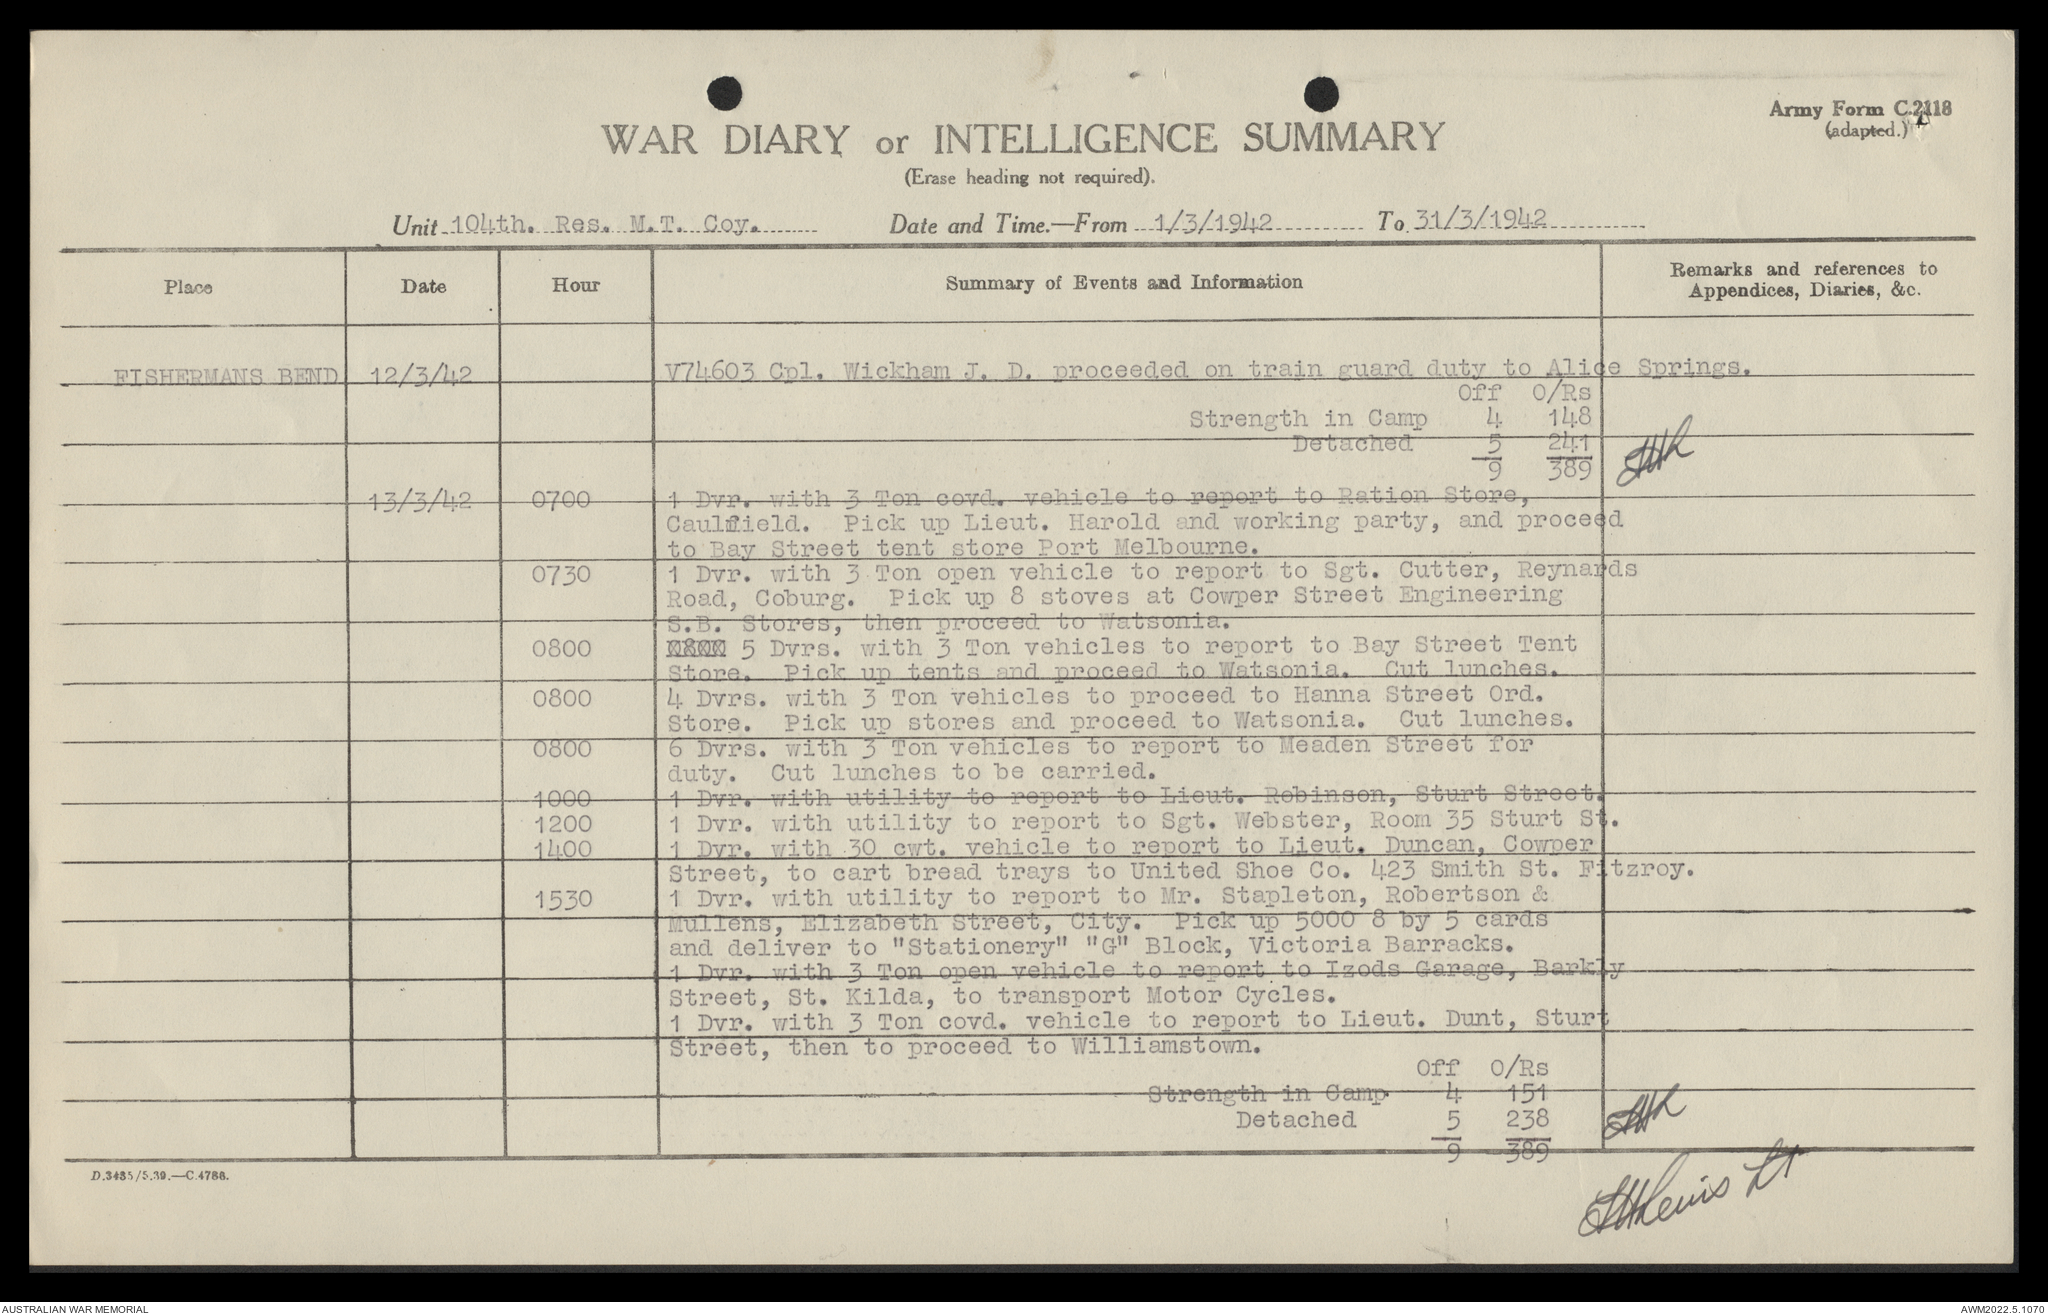 Army Form C.2118
(adapted.)
WAR DIARY or INTELLIGENCE SUMMARY
(Erase heading not required).
Unit 104th. Res. M.T. Coy. Date and Time.—From 1/3/1942 To 31/3/1942
Place Date Hour Summary of Events and Information Remarks and references to
Appendices, Diaries, &c.
FISHERMANS BEND 12/3/42 V74603 Cpl. Wickham J. D. proceeded on train guard duty to Alice Springs.
Off O/Rs
Strength in Camp 4 148
Detached 5 241
9 389
13/3/42 0700 1 Dvr. with 3 Ton covd. vehicle to report to Ration Store,
Caulfield. Pick up Lieut. Harold and working party, and proceed
to Bay Street tent store Port Melbourne.
0730 1 Dvr. with 3 Ton open vehicle to report to Sgt. Cutter, Reynards
Road, Coburg. Pick up 8 stoves at Cowper Street Engineering
S.B. Stores, then proceed to Watsonia.
0800 0800 5 Dvrs. with 3 Ton vehicles to report to Bay Street Tent
Store. Pick up tents and proceed to Watsonia. Cut lunches.
0800 4 Dvrs. with 3 Ton vehicles to proceed to Hanna Street Ord.
Store. Pick up stores and proceed to Watsonia. Cut lunches.
0800 6 Dvrs. with 3 Ton vehicles to report to Meaden Street for
duty. Cut lunches to be carried.
1000 1 Dvr. with utility to report to Lieut. Robinson, Sturt Street.
1200 1 Dvr. with utility to report to Sgt. Webster, Room 35 Sturt St.
1400 1 Dvr. with 30 cwt. vehicle to report to Lieut. Duncan, Cowper
Street, to cart bread trays to United Shoe Co. 423 Smith St. Fitzroy.
1530 1 Dvr. with utility to report to Mr. Stapleton, Robertson &
Mullens, Elizabeth Street, City. Pick up 5000 8 by 5 cards
and deliver to "Stationery" "G" Block, Victoria Barracks.
1 Dvr. with 3 Ton open vehicle to report to Izods Garage, Barkly
Street, St. Kilda, to transport Motor Cycles.
1 Dvr. with 3 Ton covd. vehicle to report to Lieut. Dunt, Sturt
Street, then to proceed to Williamstown.
Off O/Rs
Strength in Camp 4 151
Detached 5 238
9 389
D.3485/5.39.—C.4788.
Lewis Lt
AUSTRALIAN WAR MEMORIAL AWM2022.5.1070